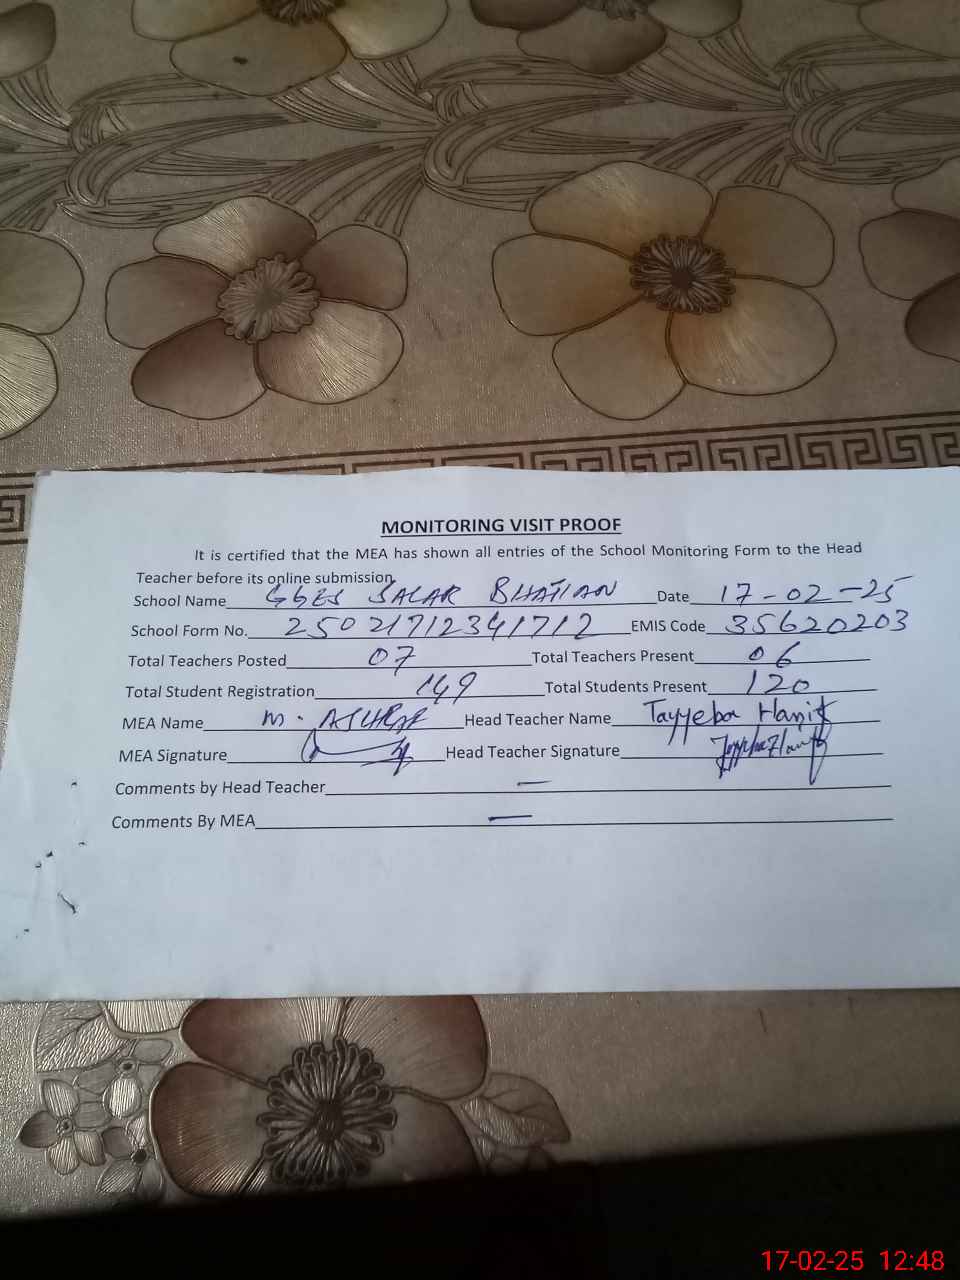 MONITORING VISIT PROOF
It is certified that the MEA has shown all entries of the School Monitoring Form to the Head
Teacher before its online submission.
School Name GGES SALAR BHATIAN Date 17-02-25
School Form No. 25021712341712 EMIS Code 35620203
Total Teachers Posted 07 Total Teachers Present 06
Total Student Registration 149 Total Students Present 120
MEA Name M. ASHRAF Head Teacher Name Tayyeba Hanif
MEA Signature Head Teacher Signature Tayyba Hanif
Comments by Head Teacher —
Comments By MEA —
17-02-25 12:48